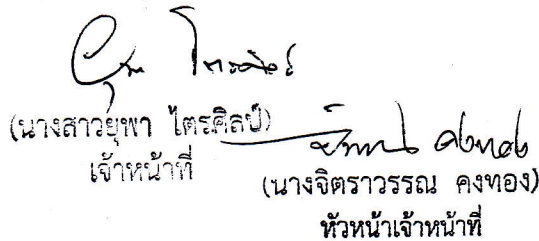 (นางสาวยุพา ไตรศิลป์)
เจ้าหน้าที่
(นางจิตราวรรณ คงทอง)
หัวหน้าเจ้าหน้าที่